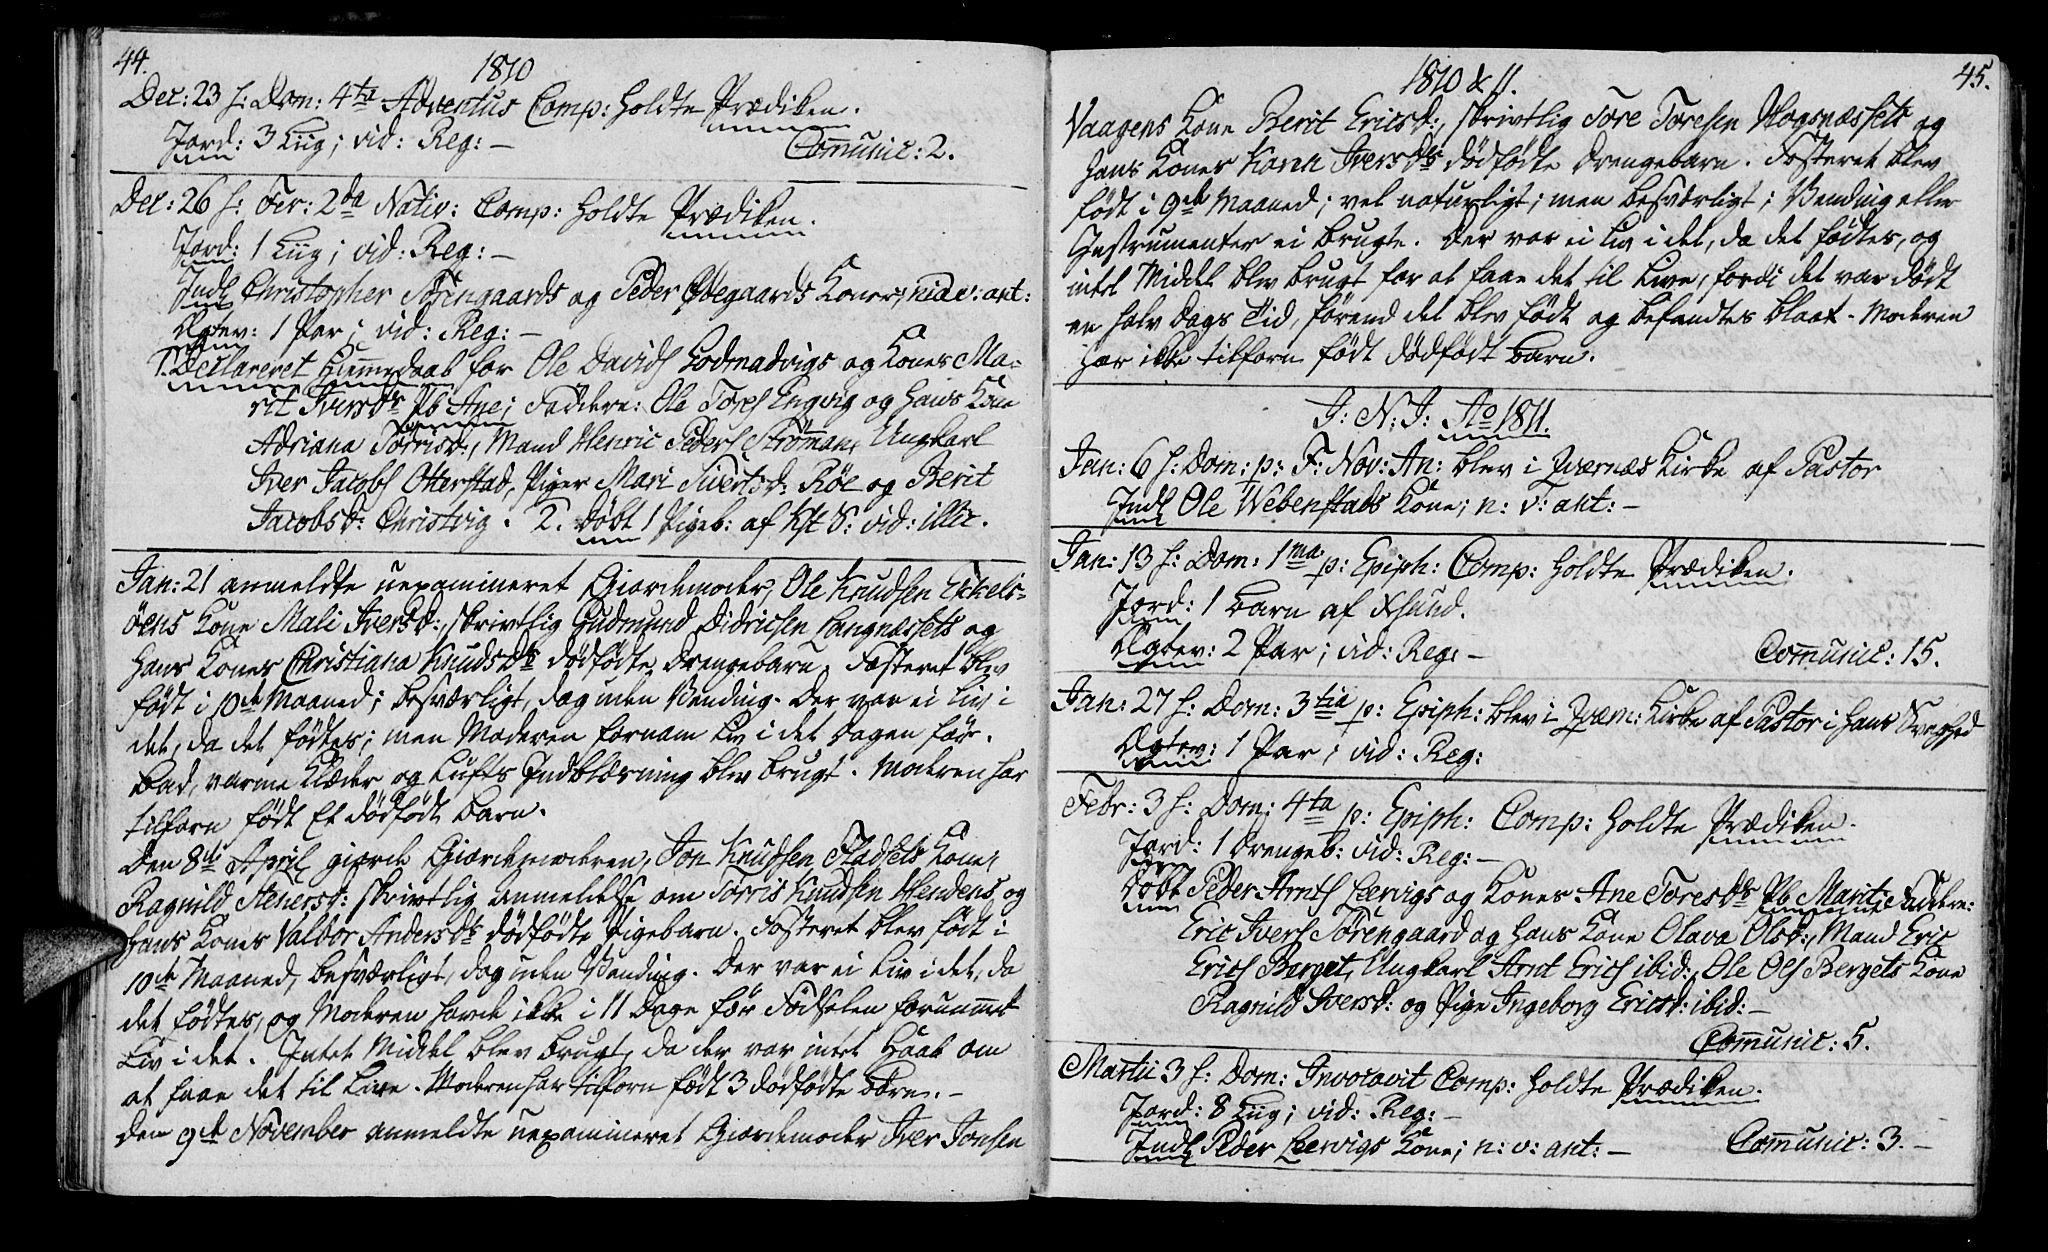 44.
1810
Dec: 23 s: Dom: 4ta Adventus Comp: holdte Prædiken.
Jord: 3 Liig; vid: Reg: —
Communic: 2.
Dec: 26 s: Fer: 2da Nativ: Comp: holdte Prædiken.
Jord: 1 Liig; vid: Reg: —
Indl Christopher Sörengaards og Peder Ödegaards Koner; vid: ant:
Ægtev: 1 Par; vid: Reg: —
1. Declareret Hiemmedaab for Ole Davids Godmadvigs og Kones Ma-
rit Iversdr Pb Ane; Faddere: Ole Tores Engvig og hans Kone
Adriana Torrisd:, Mand Henric Peders Strömman, Ungkarl
Iver Jacobs Otterstad, Piger Mari Sivertsd: Röe og Berit
Jacobsd: Christvig. 2. Döbt 1 Pigeb: af Kst S: vid: illic.
Jan: 21 anmeldte uexamineret Giordemoder, Ole Knudsen Eckels-
öens Kone Mali Iversd:, skrivtlig Gudmund Didricsen Langnæssets og
hans Kones Christiana Knudsdr dödfödte Drengebarn. Fosteret blev
födt i 10de Maaned; besværligt, dog uden Vending. Der var ei Liv i
det, da det födtes; men Moderen fornam Liv i det Dagen för.
Bad, varme Klæder og Lufts Indblæsning blev brugt. Moderen har
tilforn födt Et dödfödt Barn.
Den 8de April giorde Giordemoderen, Jon Knudsen Stadsets Kone,
Ragnild Stenersd: skrivtlig Anmeldelse om Torris Knudsen Hendens og
hans Kones Valbor Andersdr dödfödte Pigebarn. Fosteret blev födt i
10de Maaned, besværligt, dog uden Vending. Der var ei Liv i det, da
det födtes, og Moderen havde ikke i 11 Dage för Födselen fornummet
Liv i det. Intet Middel blev brugt, da der var intet Haab om
at faae det til Live. Moderen har tilforn födt 3 dödfödte Börn. —
Den 9de November anmeldte uexamineret Giordemoder Iver Jonsen
1810 & 11.
45.
Vaagens Kone Berit Ericsd:, skrivtlig Tore Toresen Hogsnæssets og
hans Kones Karen Iversdr dödfödte Drengebarn. Fosteret blev
födt i 9de Maaned; vel naturligt; men besværligt; Vending eller
Instrumenter ei brugte. Der var ei Liv i det, da det födtes, og
intet Middel blev brugt for at faae det til Live, fordi det var dödt
en halv Dags Tid, förend det blev födt og befandtes blaat. Moderen
har ikke tilforn födt dödfödt Barn.
I: N: J: Ao 1811.
Jan: 6 s: Dom: p: F: Nov: An: blev i Qværnæs Kirke af Pastor
Indl Ole Webenstads Kone; n: v: ant: —
Jan: 13 s: Dom: 1ma p: Epiph: Comp: holdte Prædiken.
Jord: 1 Barn af Xsund.
Ægtev: 2 Par; vid: Reg: —
Communic: 15.
Jan: 27 s: Dom: 3tia p: Epiph: blev i Qværn: Kirke af Pastor i hans Svaghed
Ægtev: 1 Par; vid: Reg:
Febr: 3 s: Dom: 4ta p: Epiph: Comp: holdte Prædiken.
Jord: 1 Drengeb: vid: Reg: —
Döbt Peder Arnts Leervigs og Kones Ane Toresdr Pb Marit; Faddere:
Eric Ivers Sörengaard og hans Kone Olava Olsd:, Mand Eric
Erics Berget, Ungkarl Arnt Erics ibid:, Ole Ols Bergets Kone
Ragnild Iversd: og Pige Ingeborg Ericsd: ibid: —
Communic: 5.
Martii 3 s: Dom: Invocavit Comp: holdte Prædiken.
Jord: 8 Liig; vid: Reg: —
Indl Peder Leervigs Kone; n: v: ant: —
Communic: 3. —